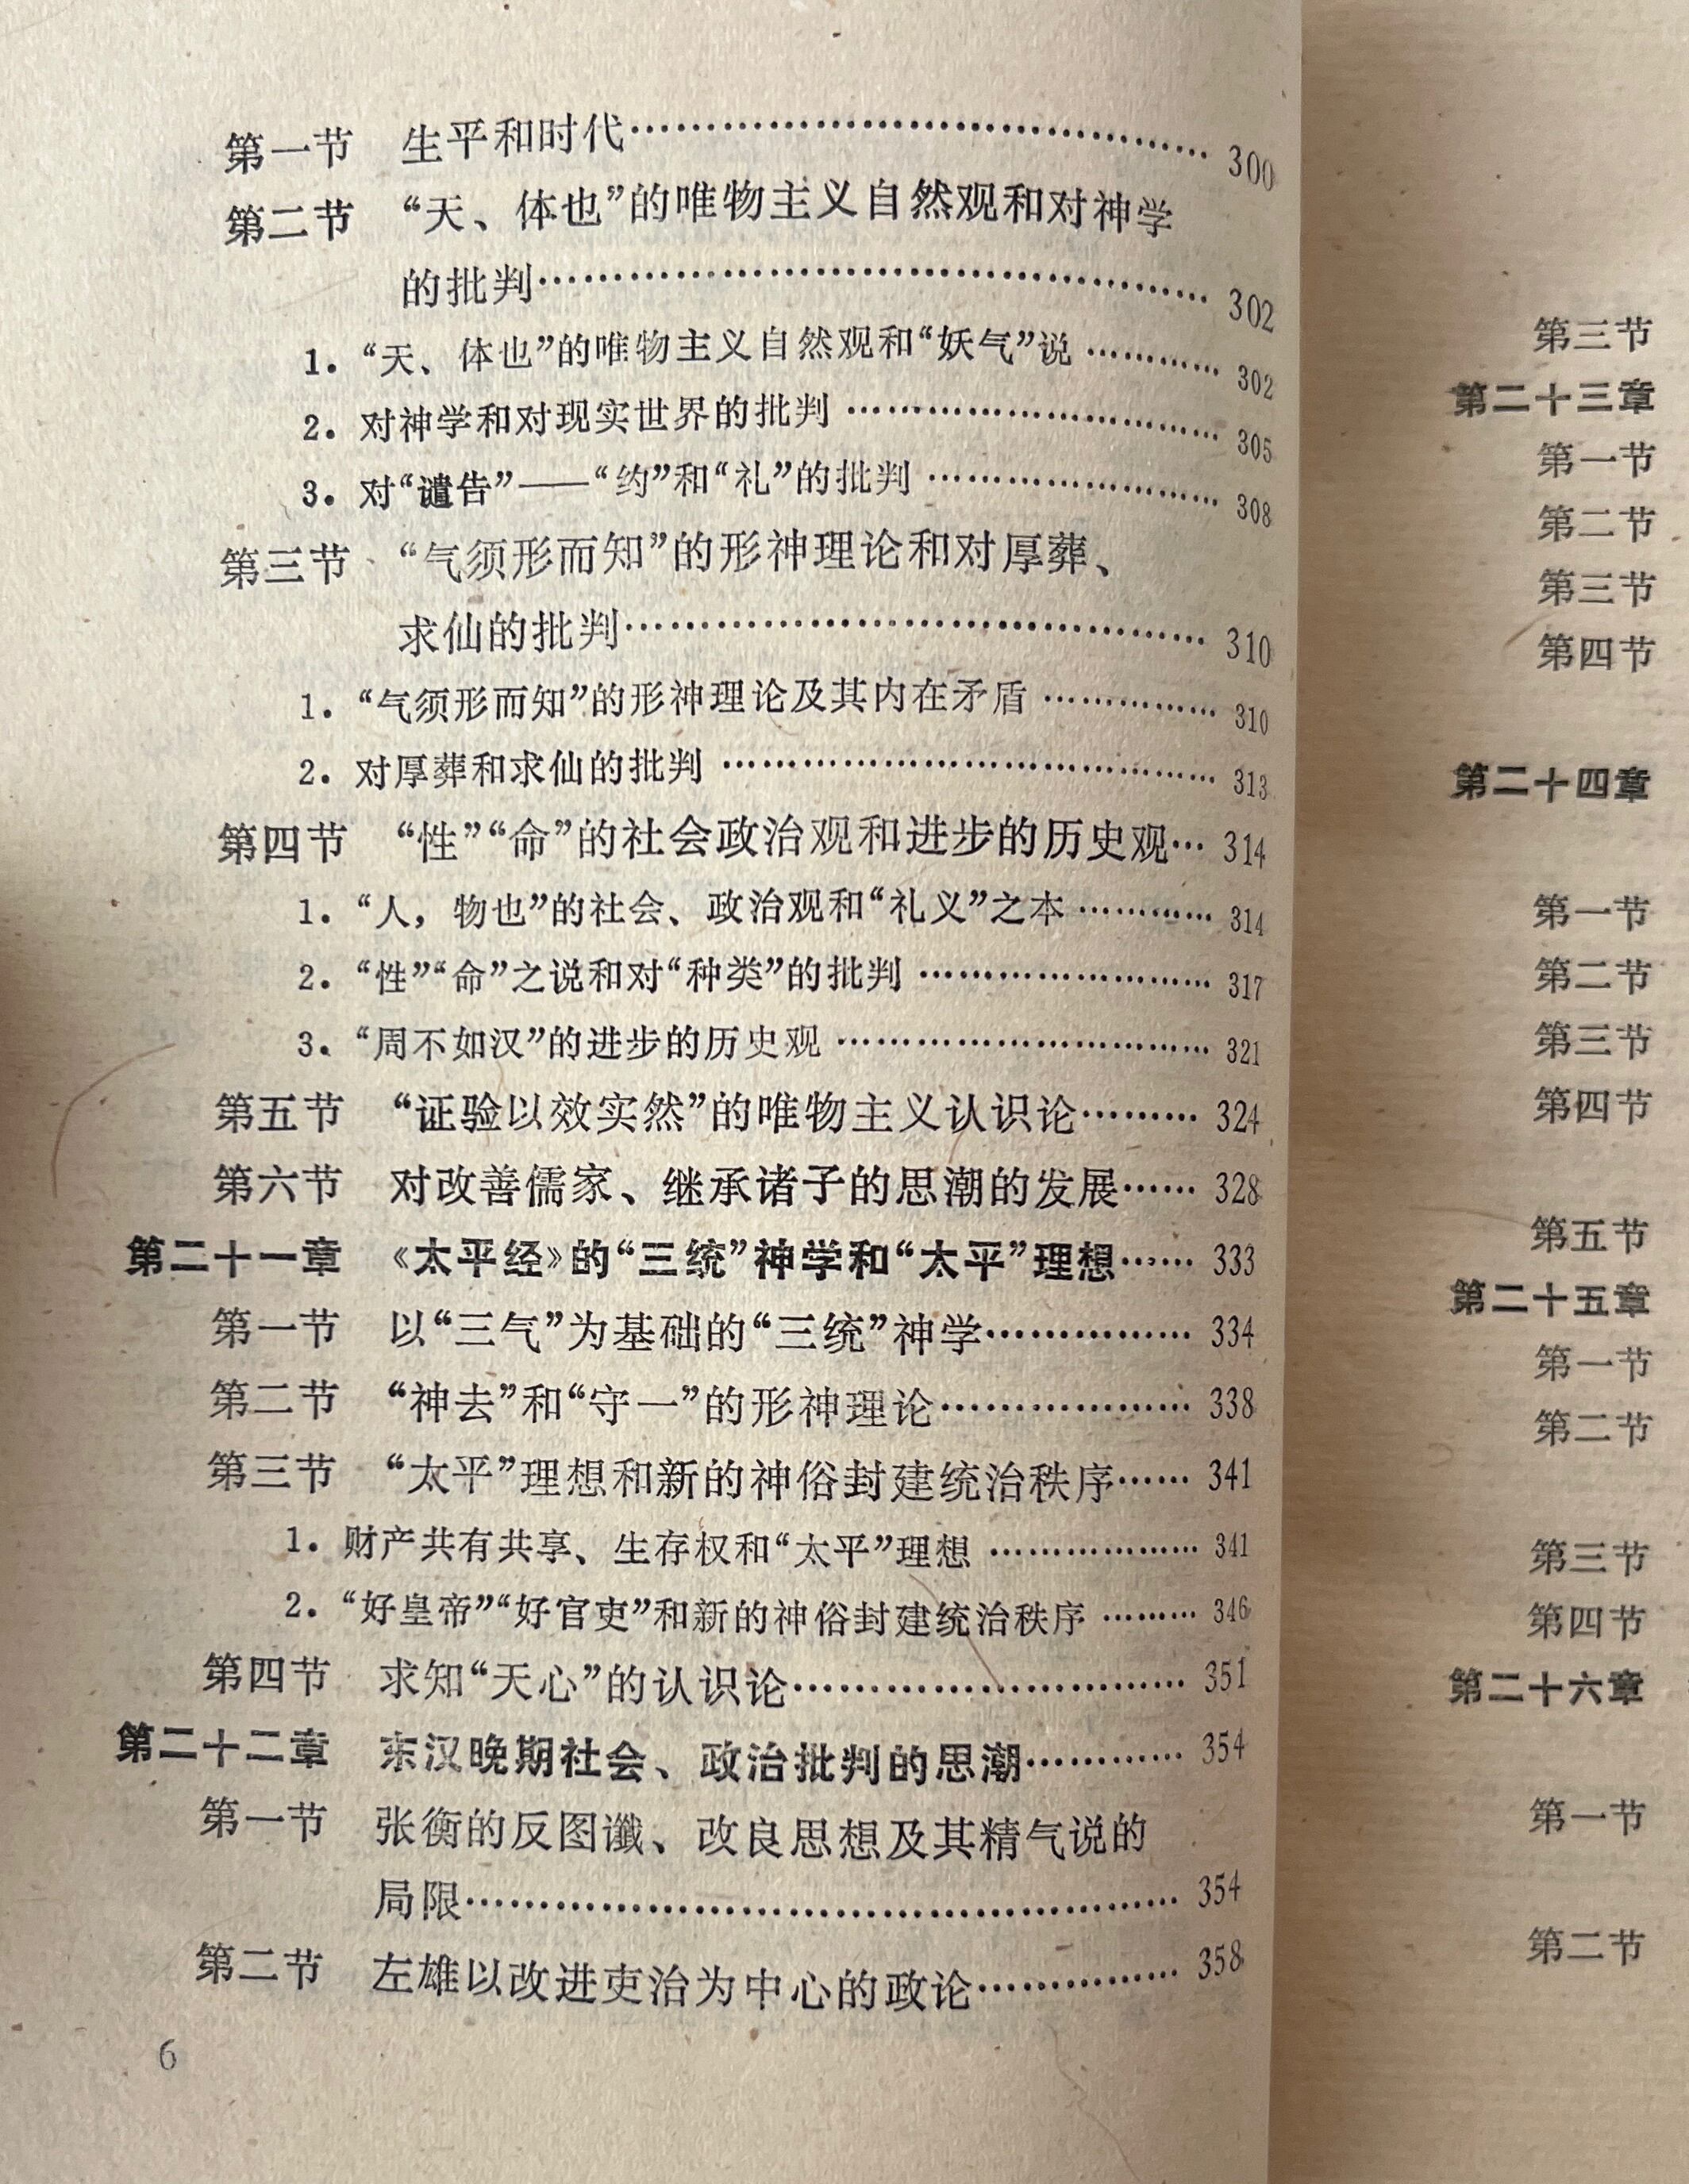 第一节 生平和时代………………………………… 300
第二节 “天、体也”的唯物主义自然观和对神学
的批判……………………………………… 302
1. “天、体也”的唯物主义自然观和“妖气”说 ………… 302
2. 对神学和对现实世界的批判 …………………… 305
3. 对“谴告”——“约”和“礼”的批判 ………………… 308
第三节 “气须形而知”的形神理论和对厚葬、
求仙的批判………………………………… 310
1. “气须形而知”的形神理论及其内在矛盾 …………… 310
2. 对厚葬和求仙的批判 …………………………… 313
第四节 “性”“命”的社会政治观和进步的历史观… 314
1. “人，物也”的社会、政治观和“礼义”之本 ………… 314
2. “性”“命”之说和对“种类”的批判 ………………… 317
3、“周不如汉”的进步的历史观 ……………………… 321
第五节 “证验以效实然”的唯物主义认识论……… 324
第六节 对改善儒家、继承诸子的思潮的发展…… 328
第二十一章 《太平经》的“三统”神学和“太平”理想…… 333
第一节 以“三气”为基础的“三统”神学…………… 334
第二节 “神去”和“守一”的形神理论……………… 338
第三节 “太平”理想和新的神俗封建统治秩序…… 341
1. 财产共有共享、生存权和“太平”理想 ……………… 341
2. “好皇帝”“好官吏”和新的神俗封建统治秩序 ……… 346
第四节 求知“天心”的认识论……………………… 351
第二十二章 东汉晚期社会、政治批判的思潮………… 354
第一节 张衡的反图谶、改良思想及其精气说的
局限………………………………………… 354
第二节 左雄以改进吏治为中心的政论…………… 358
6
第三节
第二十三章
第一节
第二节
第三节
第四节
第二十四章
第一节
第二节
第三节
第四节
第五节
第二十五章
第一节
第二节
第三节
第四节
第二十六章
第一节
第二节